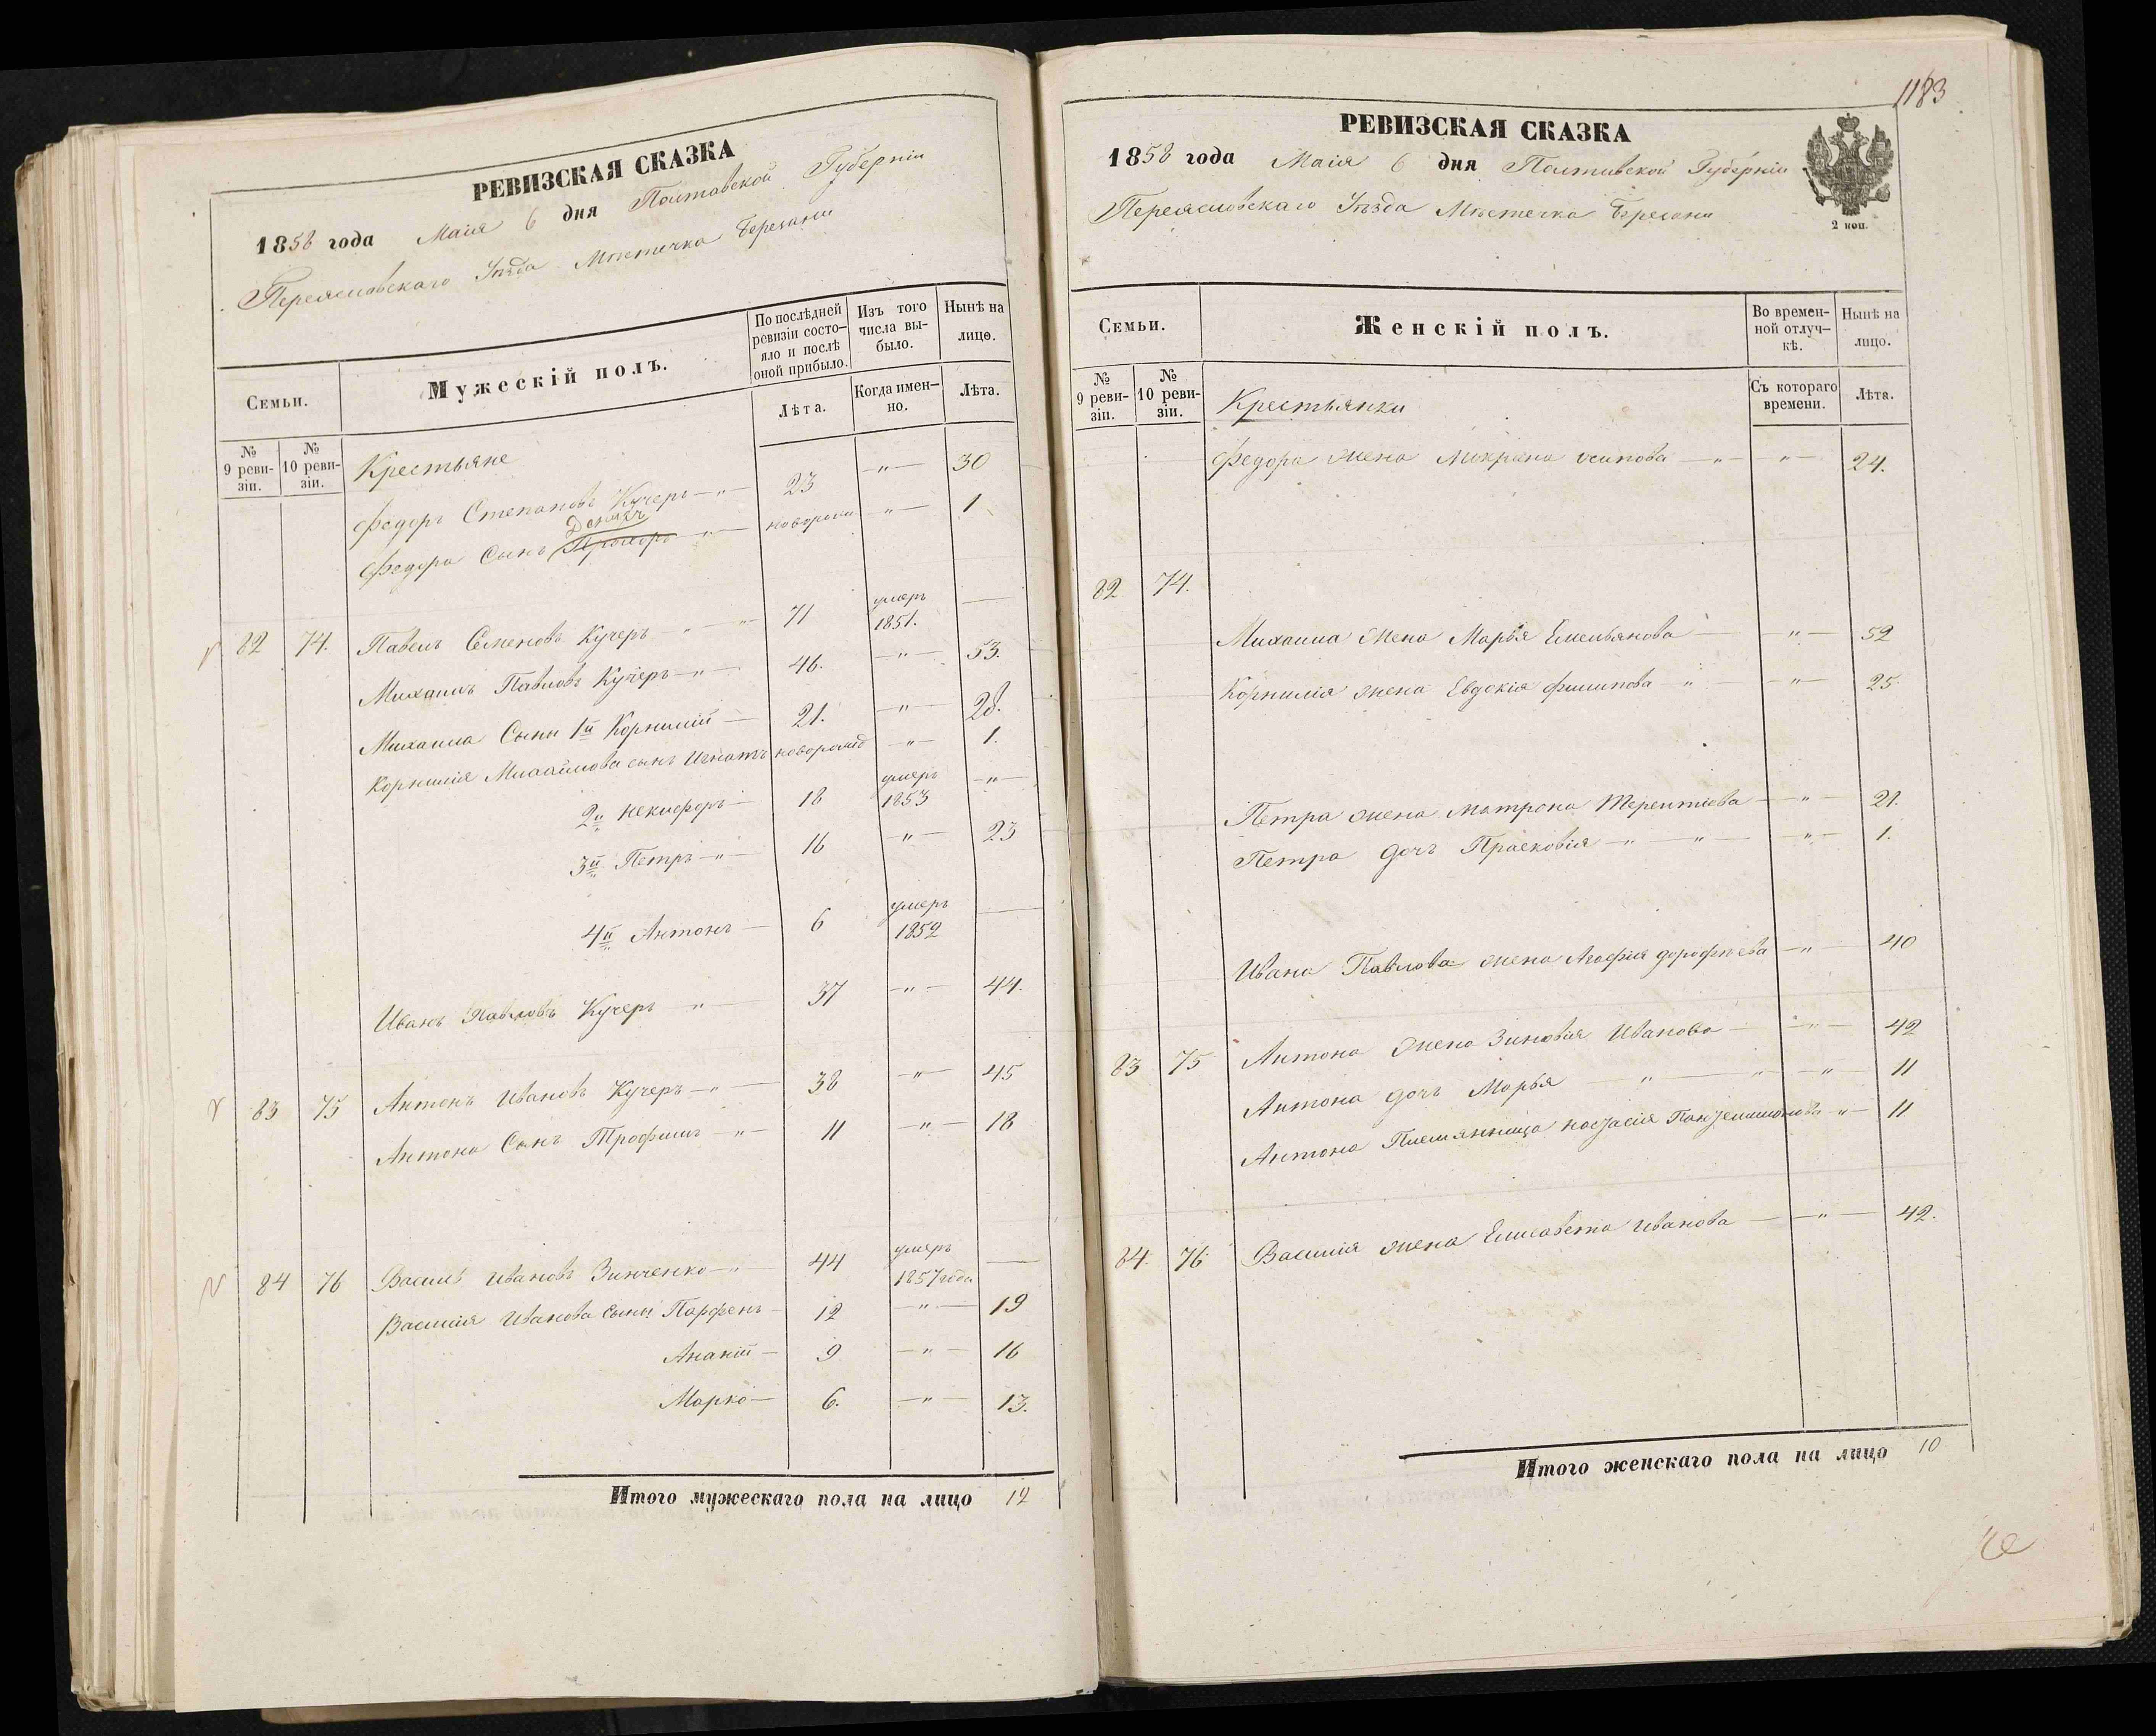 РЕВИЗСКАЯ СКАЗКА
1858 года Маія 6 дня Полтавской Губерніи
Переяславскаго Уѣзда Мѣстечка Березани
Семьи.
Мужескій полъ.
По послѣдней ревизіи состояло и послѣ оной прибыло.
Изъ того числа выбыло.
Нынѣ на лицо.
№ 9 ревизіи.
№ 10 ревизіи.
Лѣта.
Когда именно.
Лѣта.
Крестьяне
Федоръ Степановъ Кучеръ — " — 23 — " — 30
Федора Сынъ Домянъ " — новорожд — " — 1
82 74. Павелъ Семеновъ Кучеръ — " — " 71 умеръ 1851. —
Михаилъ Павловъ Кучеръ — " — 46. — " — 53.
Михаила Сыны 1й Корнилій — 21. — " — 28.
Корнилія Михайлова сынъ Игнатъ новорожд — " — 1.
2й Никифоръ — 18 умеръ 1853 — " —
3й Петръ — " — 16 " — 23
4й Антонъ — 6 умеръ 1852 —
Иванъ Павловъ Кучеръ — " — 37 — " — 44.
83 75 Антонъ Ивановъ Кучеръ — " — 38 — " — 45
Антона Сынъ Трофимъ — " — 11 — " — 18
84 76 Василь Ивановъ Зинченко — " 44 умеръ 1857 года —
Василія Иванова Сыны: Парфенъ — 12 — " — 19
Ананій — 9 — " — 16
Марко — 6. — " — 13.
Итого мужескаго пола на лицо 12
1183
РЕВИЗСКАЯ СКАЗКА
1858 года Маія 6 дня Полтавской Губерніи
Переясловскаго Уѣзда Мѣстечка Березани
2 коп.
Семьи.
Женскій полъ.
Во временной отлучкѣ.
Нынѣ на лицо.
№ 9 ревизіи.
№ 10 ревизіи.
Съ котораго времени.
Лѣта.
Крестьянки
Федора жена Осипова — " — " — 24.
82 74.
Михаила жена Марья Емельянова — " — 52
Корнилія жена Евдокія Филипова — " — " — 25
Петра жена Матрона Терентіева — " — 21.
Петра дочь Прасковія — " — " — " — 1.
Ивана Павлова жена Агафія Дорофѣева — " — 40
83 75 Антона жена Зиновія Иванова — " — 42
Антона дочь Марья — " — " — " — 11
Антона Племянница Пантелимонова " — 11
84. 76. Василія жена Елисавета Иванова — " — 42.
Итого женскаго пола на лицо 10